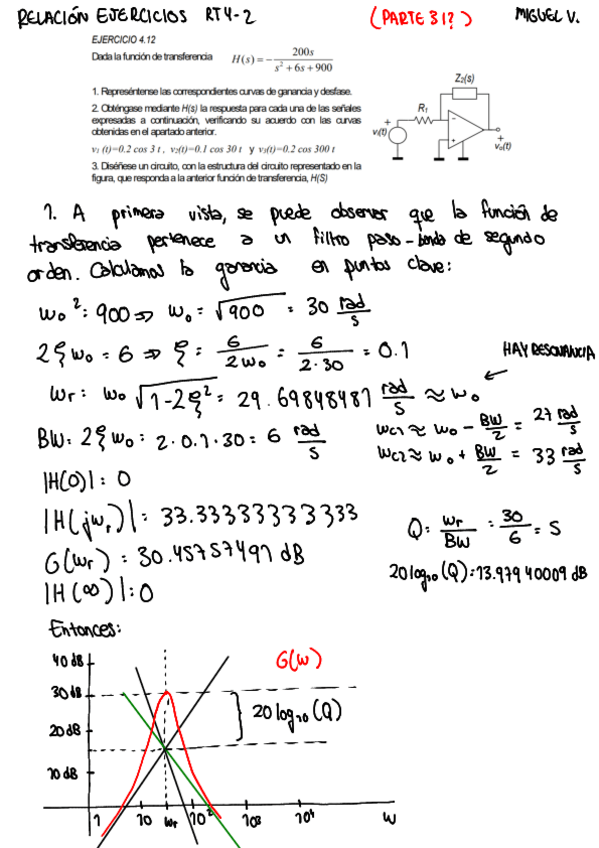 RELACIÓN EJERCICIOS RT4-2 (PARTE 31?) MIGUEL V.
EJERCICIO 4.12
Dada la función de transferencia H(s) = - 200s / (s² + 6s + 900)
1. Represéntense las correspondientes curvas de ganancia y desfase.
2. Obténgase mediante H(s) la respuesta para cada una de las señales
expresadas a continuación, verificando su acuerdo con las curvas
obtenidas en el apartado anterior.
v₁ (t)=0.2 cos 3 t , v₂(t)=0.1 cos 30 t y v₃(t)=0.2 cos 300 t
3. Diséñese un circuito, con la estructura del circuito representado en la
figura, que responda a la anterior función de transferencia, H(S)
Z₂(s)
R₁
+
vᵢ(t)
-
+
+
vₒ(t)
-
1. A primera vista, se puede observar que la función de
transferencia pertenece a un filtro paso-banda de segundo
orden. Calculamos la ganancia en puntos clave:
w₀²: 900 => w₀ = √900 = 30 rad/s
2ξw₀ = 6 => ξ = 6/2w₀ = 6/2·30 = 0.1
HAY RESONANCIA
wr = w₀ √1-2ξ² = 29.69848481 rad/s ≈ w₀
wc1 ≈ w₀ - BW/2 = 27 rad/s
BW: 2ξw₀ = 2·0.1·30 = 6 rad/s
wc2 ≈ w₀ + BW/2 = 33 rad/s
|H(0)| = 0
|H(jwr)| = 33.33333333333
Q = wr/BW = 30/6 = 5
G(wr) = 30.45757491 dB
20log₁₀(Q) = 13.97940009 dB
|H(∞)| = 0
Entonces:
40 dB
G(w)
30 dB
20 log₁₀(Q)
20 dB
10 dB
1 10 wr 10² 10³ 10⁴ w